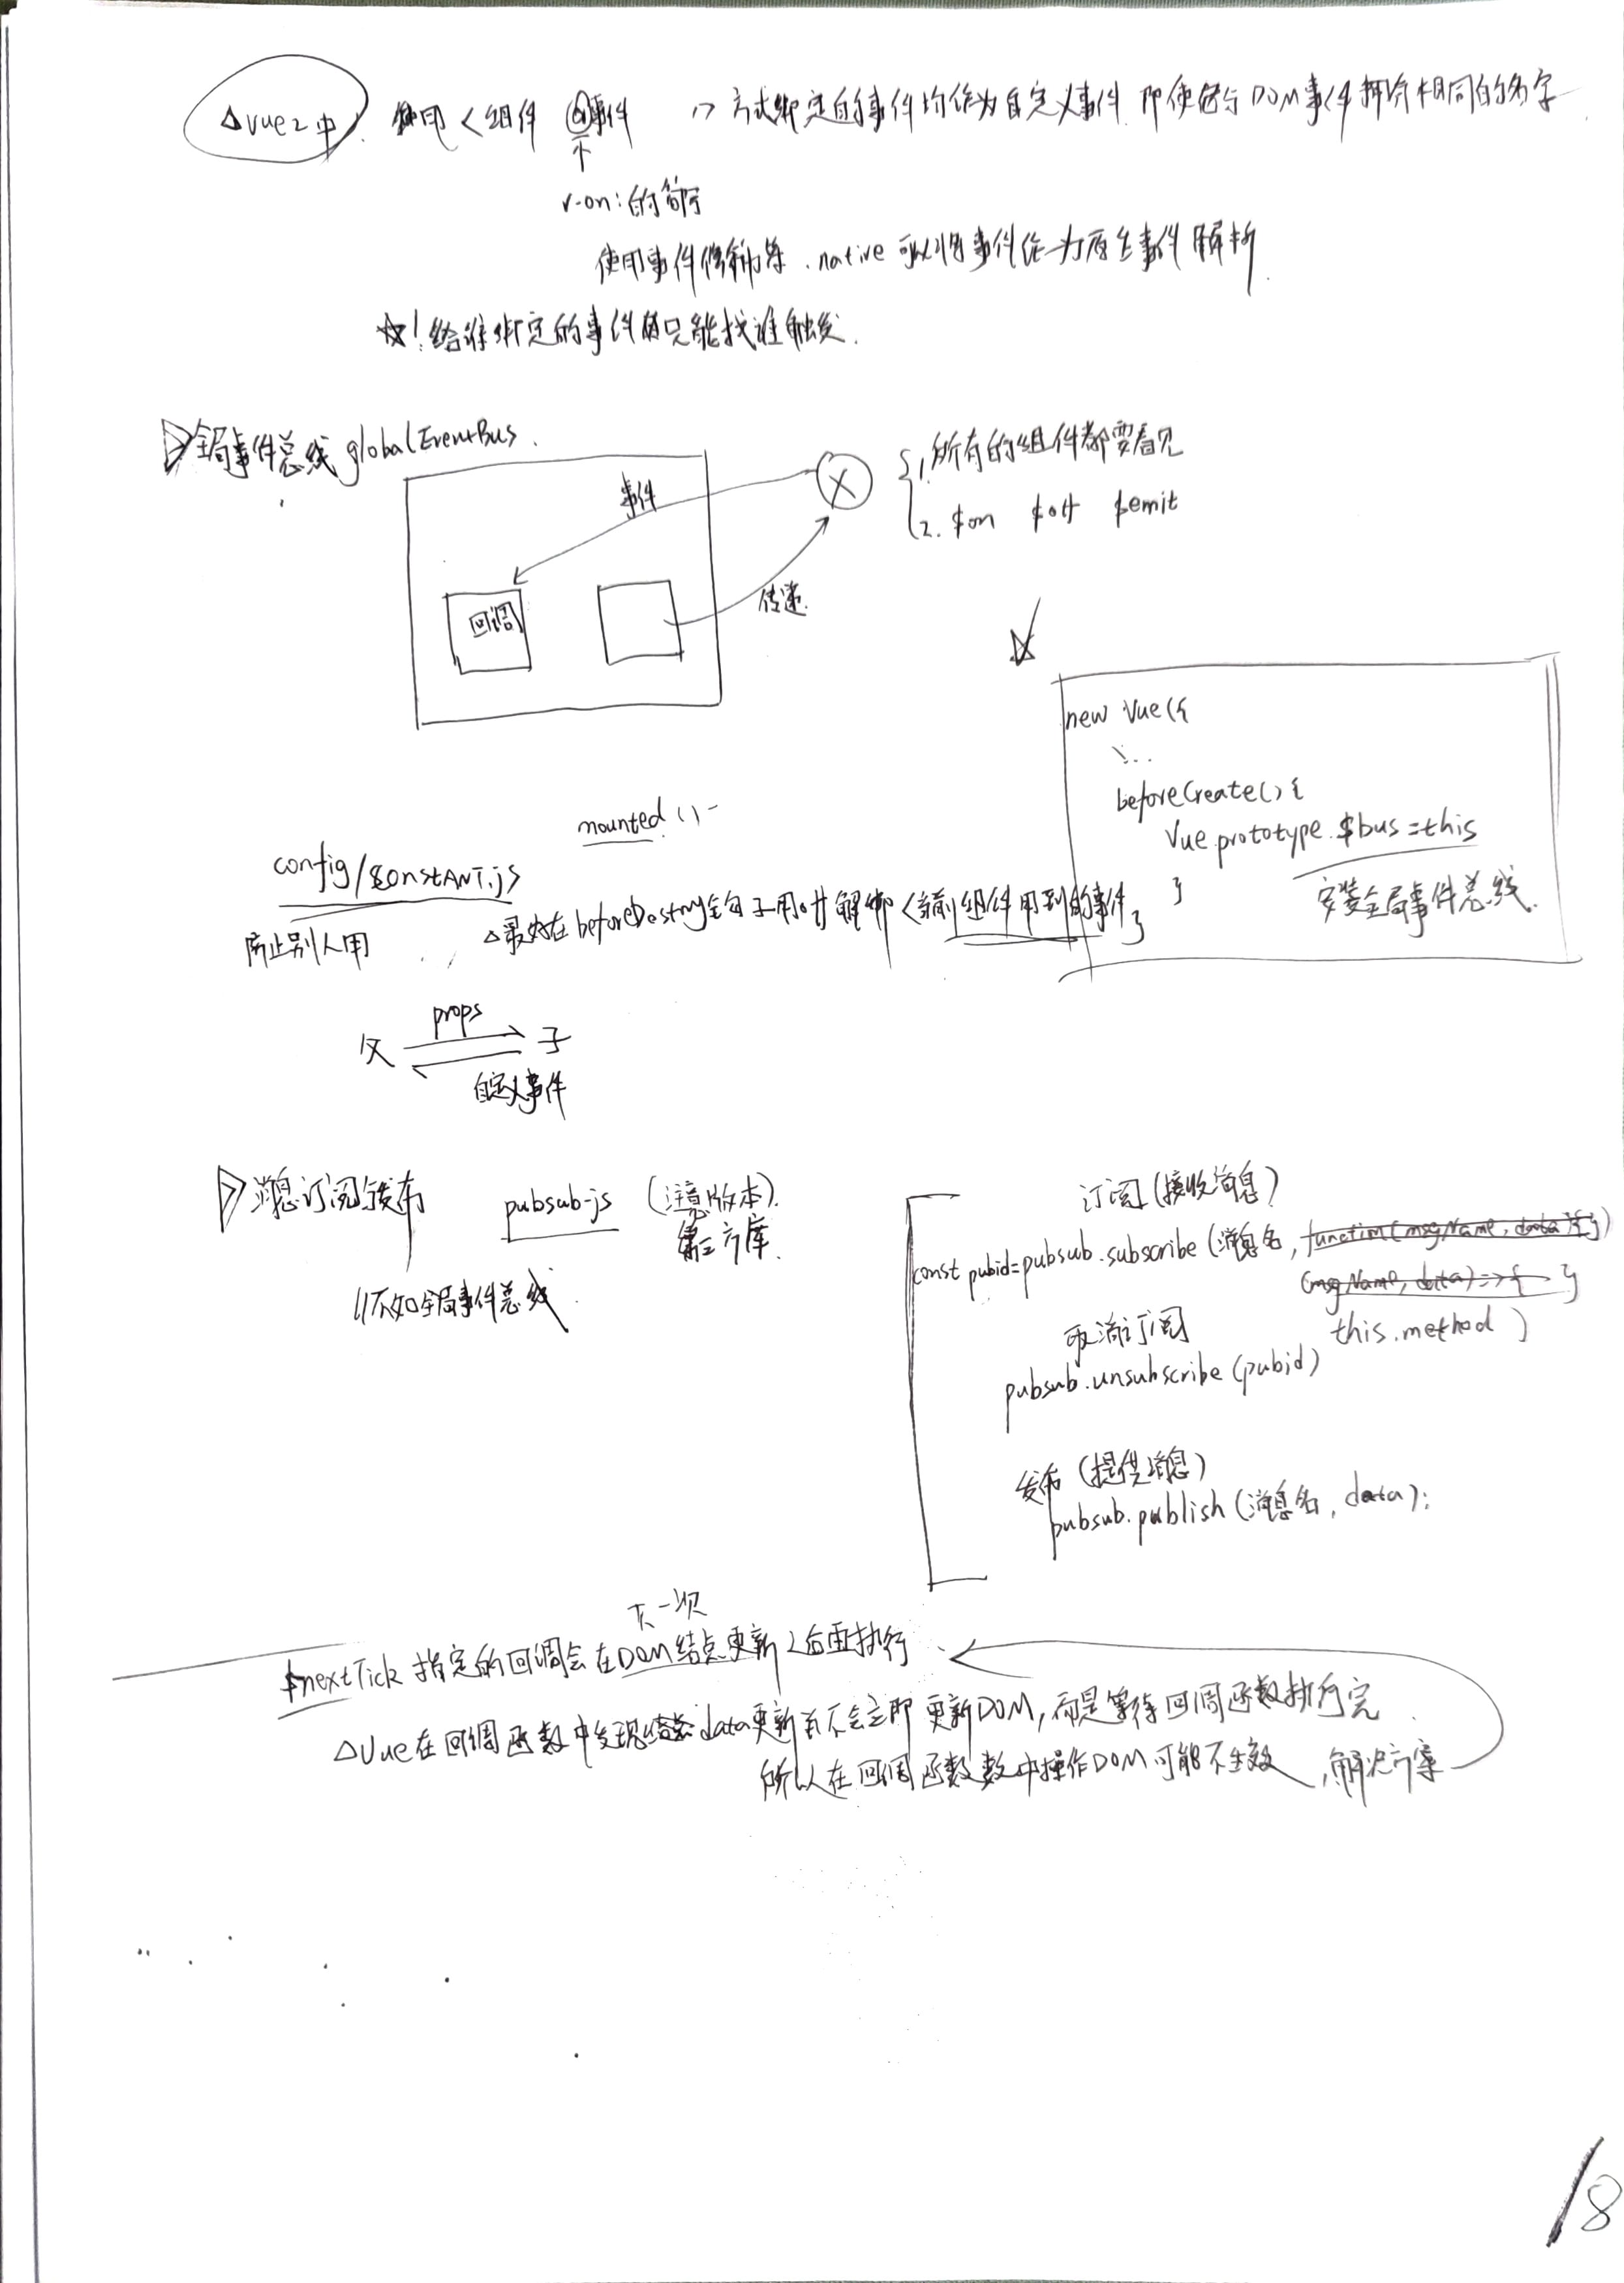 △vue2中 使用 <组件 @事件 /> 方式绑定的事件均作为自定义事件 即使它与DOM事件拥有相同的名字
↑
v-on:的简写
使用事件修饰符 .native 可以将事件作为原生事件解析
☆! 给谁绑定的事件只能找谁触发.
▷全局事件总线 globalEventBus.
事件
X
{1. 所有的组件都要看见
2. $on $off $emit
回调
传递.
☆
new Vue({
...
beforeCreate(){
Vue.prototype.$bus=this
安装全局事件总线.
}
}
mounted ()-
config/constANT.js
防止别人用
△最好在beforeDestroy钩子用off解绑<当前组件用到的事件
props
父 子
自定义事件
▷消息订阅与发布 pubsub-js (注意版本).
第三方库.
//不如全局事件总线.
订阅(接收消息)
const pubid=pubsub.subscribe(消息名, function(msgName, data){})
(msgName, data)=>{ }
this.method )
取消订阅
pubsub.unsubscribe(pubid)
发布(提供消息)
pubsub.publish(消息名, data);
下一次
$nextTick 指定的回调会在DOM结点更新之后再执行
△Vue在回调函数中发现data更新并不会立即更新DOM, 而是等待回调函数执行完
所以在回调函数中操作DOM可能不生效, 解决方案
18